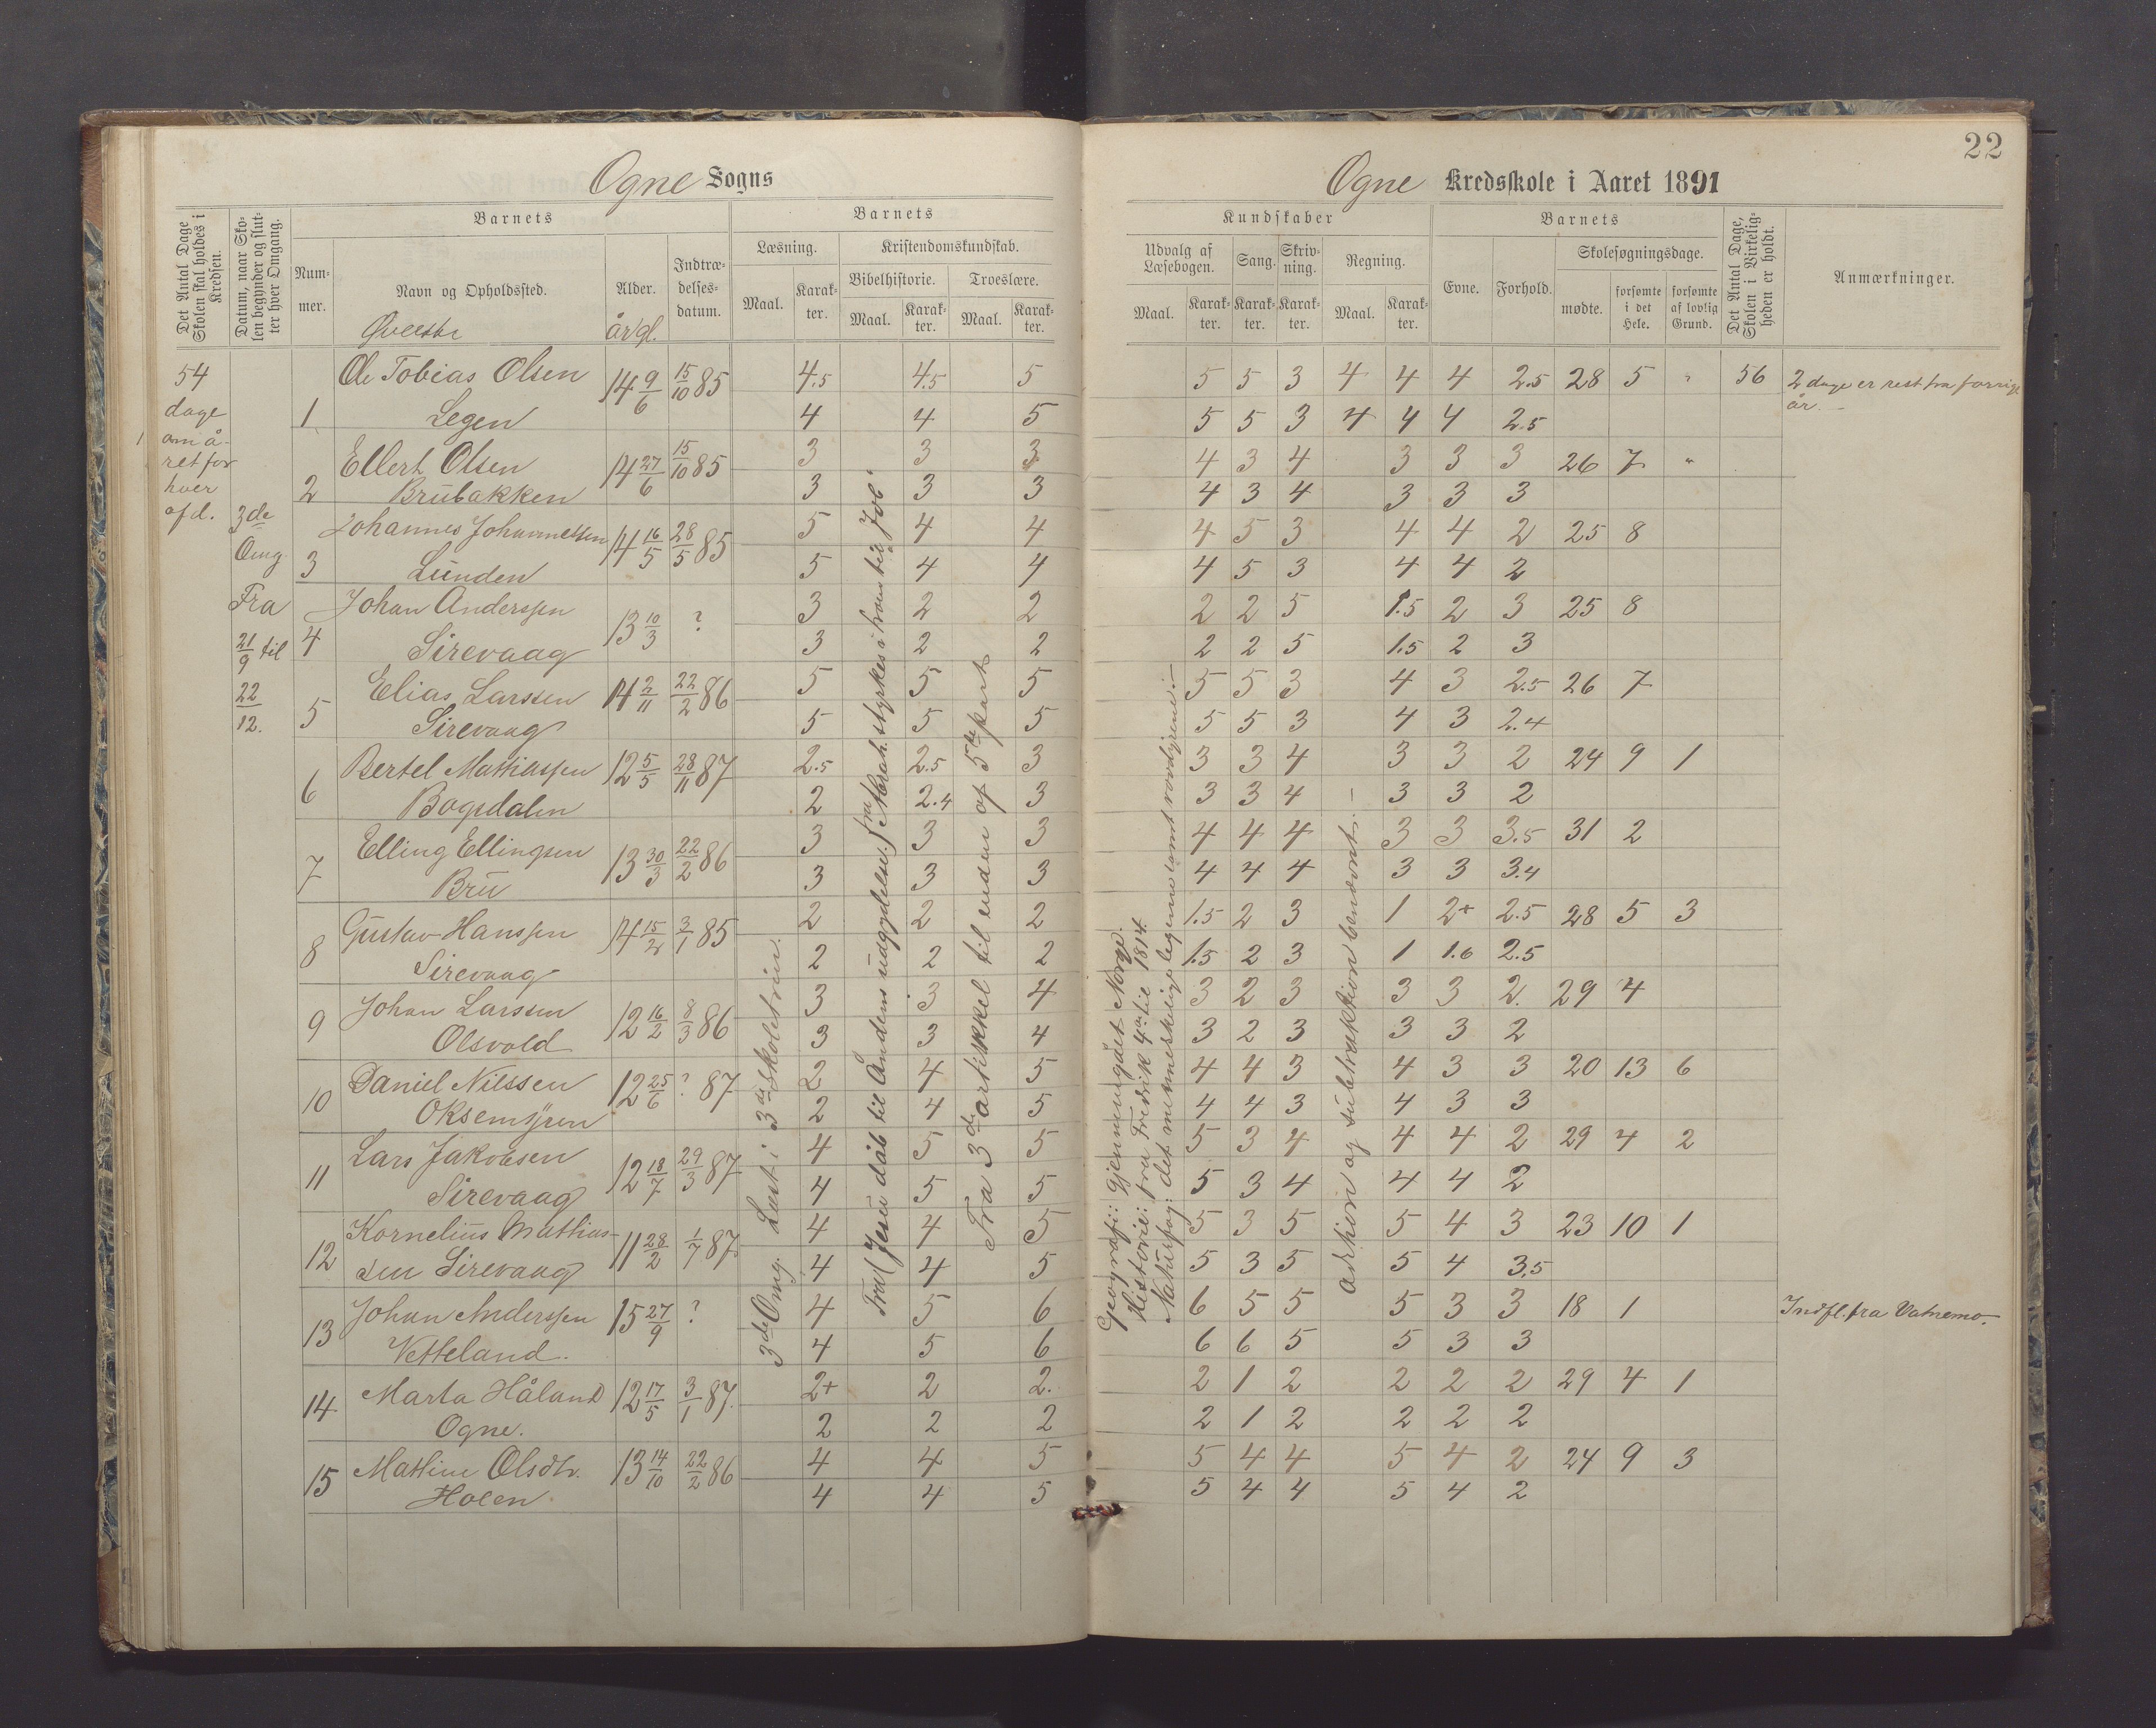 Ogne Sogns
Det Antal Dage Skolen skal holdes i Kredsen.
Datum, naar Skolen begynder og slutter hver Omgang.
Barnets
Nummer.
Navn og Opholdssted.
Alder.
Indtrædelsesdatum.
Øverste
år gl.
Barnets
Læsning.
Kristendomskundskab.
Bibelhistorie.
Troeslære.
Maal. Karakter. Maal. Karakter. Maal. Karakter.
54
dage
om å-
ret for
hver
afd.
3de
Omg.
Fra
21/9 til
22/12.
1 Ole Tobias Olsen 14 9/6 15/10 85 4.5 4.5 5
Legen 4 4 5
2 Ellert Olsen 14 27/6 15/10 85 3 3 3
Brubakken 3 3 3
3 Johannes Johannessen 14 16/5 28/5 85 5 4 4
Lunden 5 4 4
4 Johan Anderssen 13 10/3 ? 3 2 2
Sirevaag 3 2 2
5 Elias Larssen 14 2/11 22/2 86 5 5 5
Sirevaag 5 5 5
6 Bertel Mattiassen 12 5/5 28/11 87 2.5 2.5 3
Bogsdalen 2 2.4 3
7 Elling Ellingsen 13 30/3 22/2 86 3 3 3
Bru 3 3 3
8 Gustav Hanssen 14 15/2 3/1 85 2 2 2
Sirevaag 2 2 2
9 Johan Larssen 12 16/2 8/3 86 3 3 4
Olsvold 3 3 4
10 Daniel Nilssen 12 25/6 ? 87 2 4 5
2 4 5
11 Lars Jakobsen 12 18/7 29/3 87 4 5 5
Sirevaag 4 5 5
12 Kornelius Mathias- 11 28/2 1/7 87 4 4 5
sen Sirevaag 4 4 5
13 Johan Anderssen 15 27/9 ? 4 5 6
Vetteland. 4 5 6
14 Marta Håland 12 17/5 3/1 87. 2+ 2 2.
Ogne. 2 2 2
15 Mattine Olsdtr. 13 14/10 22/2 86 4 4 5
Holen. 4 4 5
3de Omg. Læst i 3de skoletrin.
Fra Jesu dåb til Åndens udgydelse.
Fra 3de artikkel til enden af 5te part
22
Ogne Kredsskole i Aaret 1891
Kundskaber
Udvalg af Læsebogen.
Sang.
Skrivning.
Regning.
Maal. Karakter. Karakter. Karakter. Maal. Karakter.
Barnets
Evne.
Forhold.
Skolesøgningsdage.
mødte.
forsømte i det Hele.
forsømte af lovlig Grund.
Det Antal Dage, Skolen i Virkeligheden er holdt.
Anmærkninger.
5 5 3 4 4 4 2.5 28 5 " 56 2 dage er rest fra forrige
år.
5 5 3 4 4 4 2.5
4 3 4 3 3 3 26 7 "
4 3 4 3 3 3
4 5 3 4 4 2 25 8
4 5 3 4 4 2
2 2 5 1.5 2 3 25 8
2 2 5 1.5 2 3
5 5 3 4 3 2.5 26 7
5 5 3 4 3 2.4
3 3 4 3 3 2 24 9 1
3 3 4 3 3 2
4 4 4 3 3 3.5 31 2
4 4 4 3 3 3.4
1.5 2 3 1 2+ 2.5 28 5 3
1.5 2 3 1 1.6 2.5
3 2 3 3 3 2. 29 4
3 2 3 3 3 2
4 4 3 4 3 3 20 13 6
4 4 3 4 3 3
5 3 4 4 4 2 29 4 2
5 3 4 4 4 2
5 3 5 5 4 3 23 10 1
5 3 5 5 4 3,5
6 5 5 5 3 3 18 1 Indfl. fra Vatnemo.
6 6 5 5 3 3
2 1 2 2 2 2 29 4 1
2 1 2 2 2 2
5 4 4 5 4 2 24 9 3
5 4 4 5 4 2
Geografi: gjennemgået Norge.
Historie: fra Fredrik 4de til 1814.
Naturfag: det menneskelige legeme samt rovdyrene.
Adition og subtraktion benævnt.